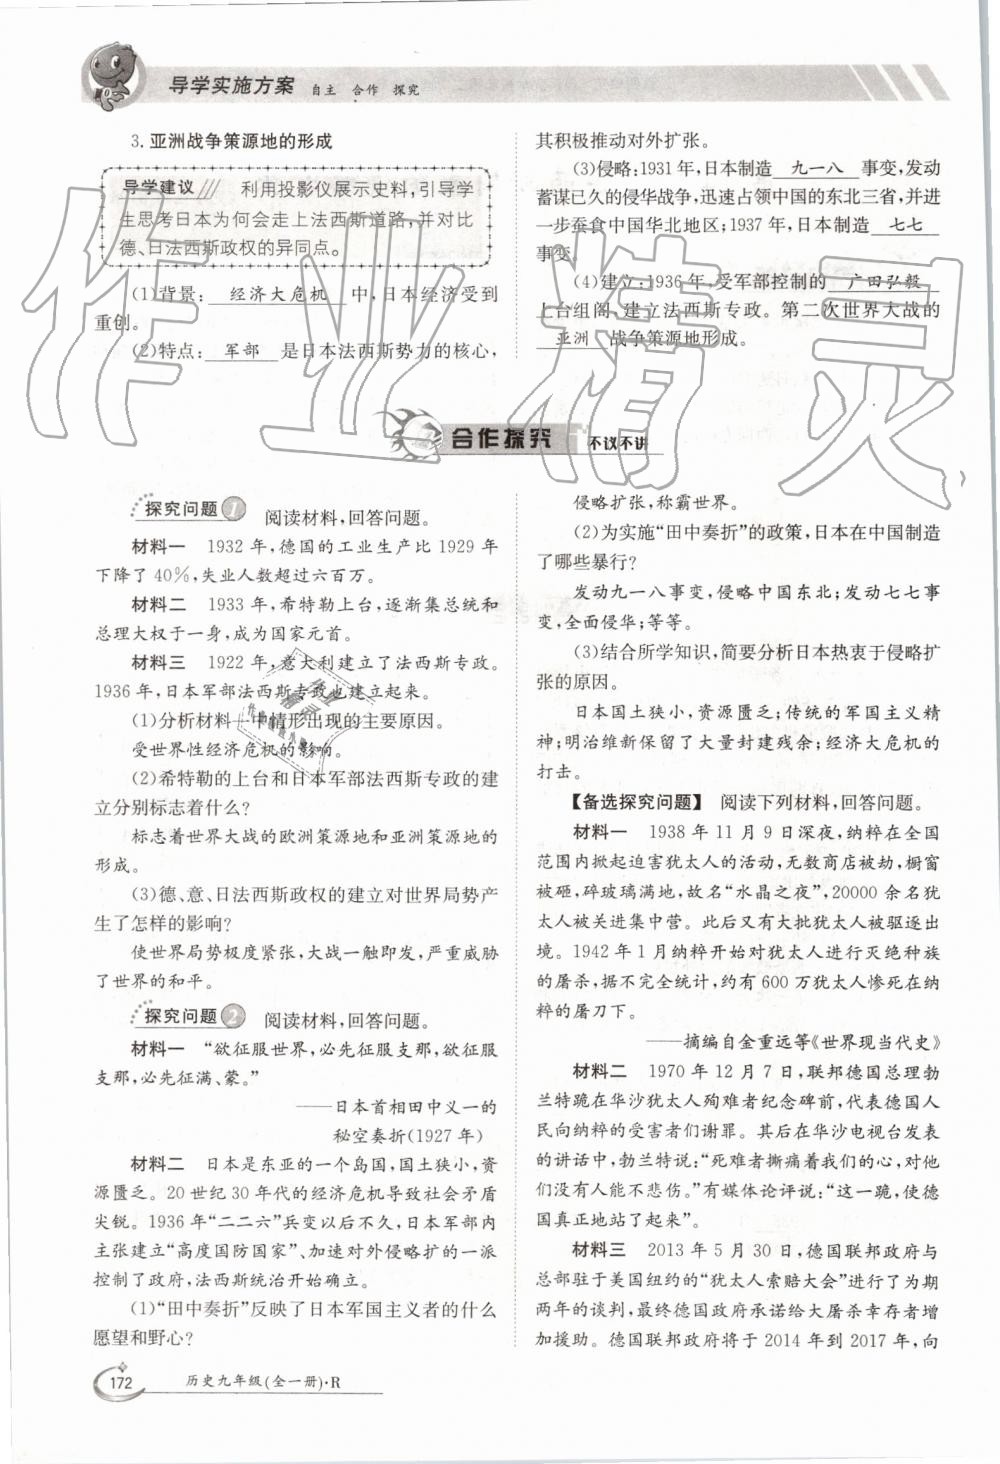 导学实施方案 自主 合作 探究
3. 亚洲战争策源地的形成
导学建议 利用投影仪展示史料,引导学
生思考日本为何会走上法西斯道路,并对比
德、日法西斯政权的异同点。
(1)背景: 经济大危机 中,日本经济受到
重创。
(2)特点: 军部 是日本法西斯势力的核心,
其积极推动对外扩张。
(3)侵略:1931年,日本制造 九一八 事变,发动
蓄谋已久的侵华战争,迅速占领中国的东北三省,并进
一步蚕食中国华北地区;1937年,日本制造 七七
事变。
(4)建立:1936年,受军部控制的 广田弘毅
上台组阁、建立法西斯专政。第二次世界大战的
亚洲 战争策源地形成。
合作探究 不议不讲
探究问题1 阅读材料,回答问题。
材料一 1932年,德国的工业生产比1929年
下降了40%,失业人数超过六百万。
材料二 1933年,希特勒上台,逐渐集总统和
总理大权于一身,成为国家元首。
材料三 1922年,意大利建立了法西斯专政。
1936年,日本军部法西斯专政也建立起来。
(1)分析材料一中情形出现的主要原因。
受世界性经济危机的影响。
(2)希特勒的上台和日本军部法西斯专政的建
立分别标志着什么?
标志着世界大战的欧洲策源地和亚洲策源地的
形成。
(3)德、意、日法西斯政权的建立对世界局势产
生了怎样的影响?
使世界局势极度紧张,大战一触即发,严重威胁
了世界的和平。
探究问题2 阅读材料,回答问题。
材料一 “欲征服世界,必先征服支那,欲征服
支那,必先征满、蒙。”
——日本首相田中义一的
秘空奏折(1927年)
材料二 日本是东亚的一个岛国,国土狭小,资
源匮乏。20世纪30年代的经济危机导致社会矛盾
尖锐。1936年“二二六”兵变以后不久,日本军部内
主张建立“高度国防国家”、加速对外侵略扩的一派
控制了政府,法西斯统治开始确立。
(1)“田中奏折”反映了日本军国主义者的什么
愿望和野心?
侵略扩张,称霸世界。
(2)为实施“田中奏折”的政策,日本在中国制造
了哪些暴行?
发动九一八事变,侵略中国东北;发动七七事
变,全面侵华;等等。
(3)结合所学知识,简要分析日本热衷于侵略扩
张的原因。
日本国土狭小,资源匮乏;传统的军国主义精
神;明治维新保留了大量封建残余;经济大危机的
打击。
【备选探究问题】 阅读下列材料,回答问题。
材料一 1938年11月9日深夜,纳粹在全国
范围内掀起迫害犹太人的活动,无数商店被劫,橱窗
被砸,碎玻璃满地,故名“水晶之夜”,20000余名犹
太人被关进集中营。此后又有大批犹太人被驱逐出
境。1942年1月纳粹开始对犹太人进行灭绝种族
的屠杀,据不完全统计,约有600万犹太人惨死在纳
粹的屠刀下。
——摘编自金重远等《世界现当代史》
材料二 1970年12月7日,联邦德国总理勃
兰特跪在华沙犹太人殉难者纪念碑前,代表德国人
民向纳粹的受害者们谢罪。其后在华沙电视台发表
的讲话中,勃兰特说:“死难者撕痛着我们的心,对他
们没有人能不悲伤。”有媒体论评说:“这一跪,使德
国真正地站了起来”。
材料三 2013年5月30日,德国联邦政府与
总部驻于美国纽约的“犹太人索赔大会”进行了为期
两年的谈判,最终德国政府承诺给大屠杀幸存者增
加援助。德国联邦政府将于2014年到2017年,向
172 历史九年级(全一册)·R
作业精灵